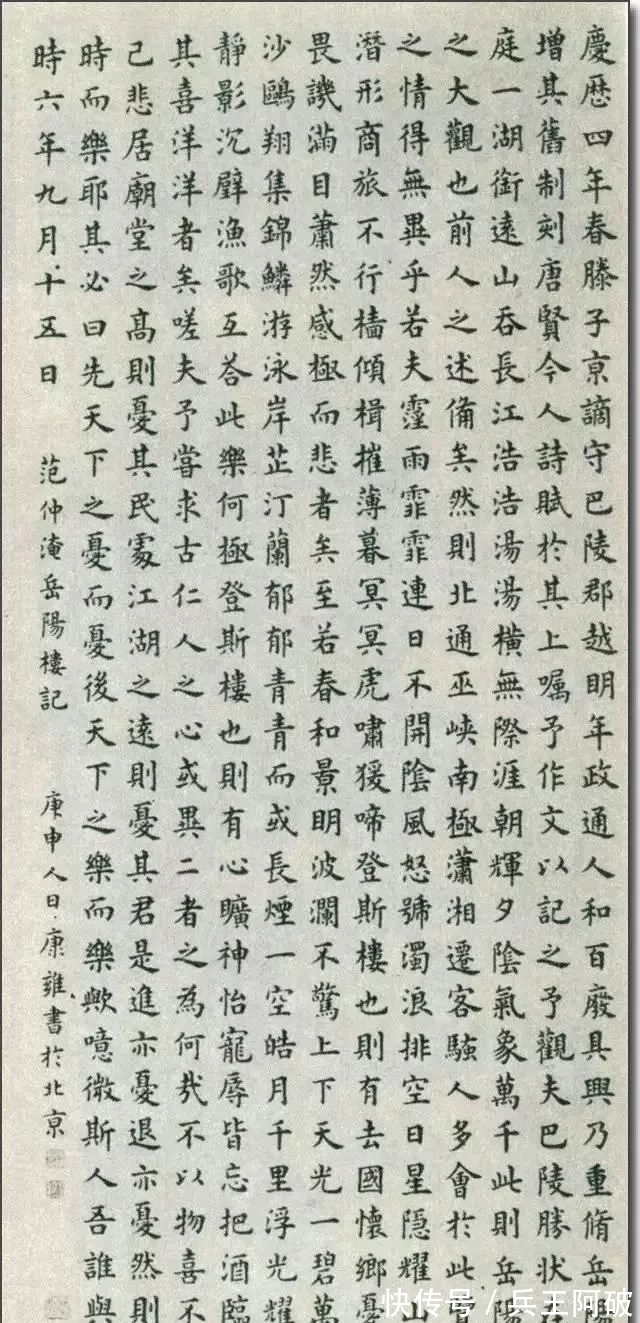 慶歷四年春滕子京謫守巴陵郡越明年政通人和百廢具興乃重脩岳陽
增其舊制刻唐賢今人詩賦於其上囑予作文以記之予觀夫巴陵勝狀在
庭一湖銜遠山吞長江浩浩湯湯橫無際涯朝輝夕陰氣象萬千此則岳陽
之大觀也前人之述備矣然則北通巫峽南極瀟湘遷客騷人多會於此
之情得無異乎若夫霪雨霏霏連日不開陰風怒號濁浪排空日星隱耀山
潛形商旅不行檣傾楫摧薄暮冥冥虎嘯猨啼登斯樓也則有去國懷鄉憂
畏譏滿目蕭然感極而悲者矣至若春和景明波瀾不驚上下天光一碧萬
沙鷗翔集錦鱗游泳岸芷汀蘭郁郁青青而或長煙一空皓月千里浮光耀
靜影沉璧漁歌互荅此樂何極登斯樓也則有心曠神怡寵辱皆忘把酒臨
其喜洋洋者矣嗟夫予嘗求古仁人之心或異二者之為何哉不以物喜不
己悲居廟堂之高則憂其民處江湖之遠則憂其君是進亦憂退亦憂然則
時而樂耶其必曰先天下之憂而憂後天下之樂而樂歟噫微斯人吾誰與
時六年九月十五日 范仲淹岳陽樓記 庚申人日康雍書於北京
快传号/兵王阿破